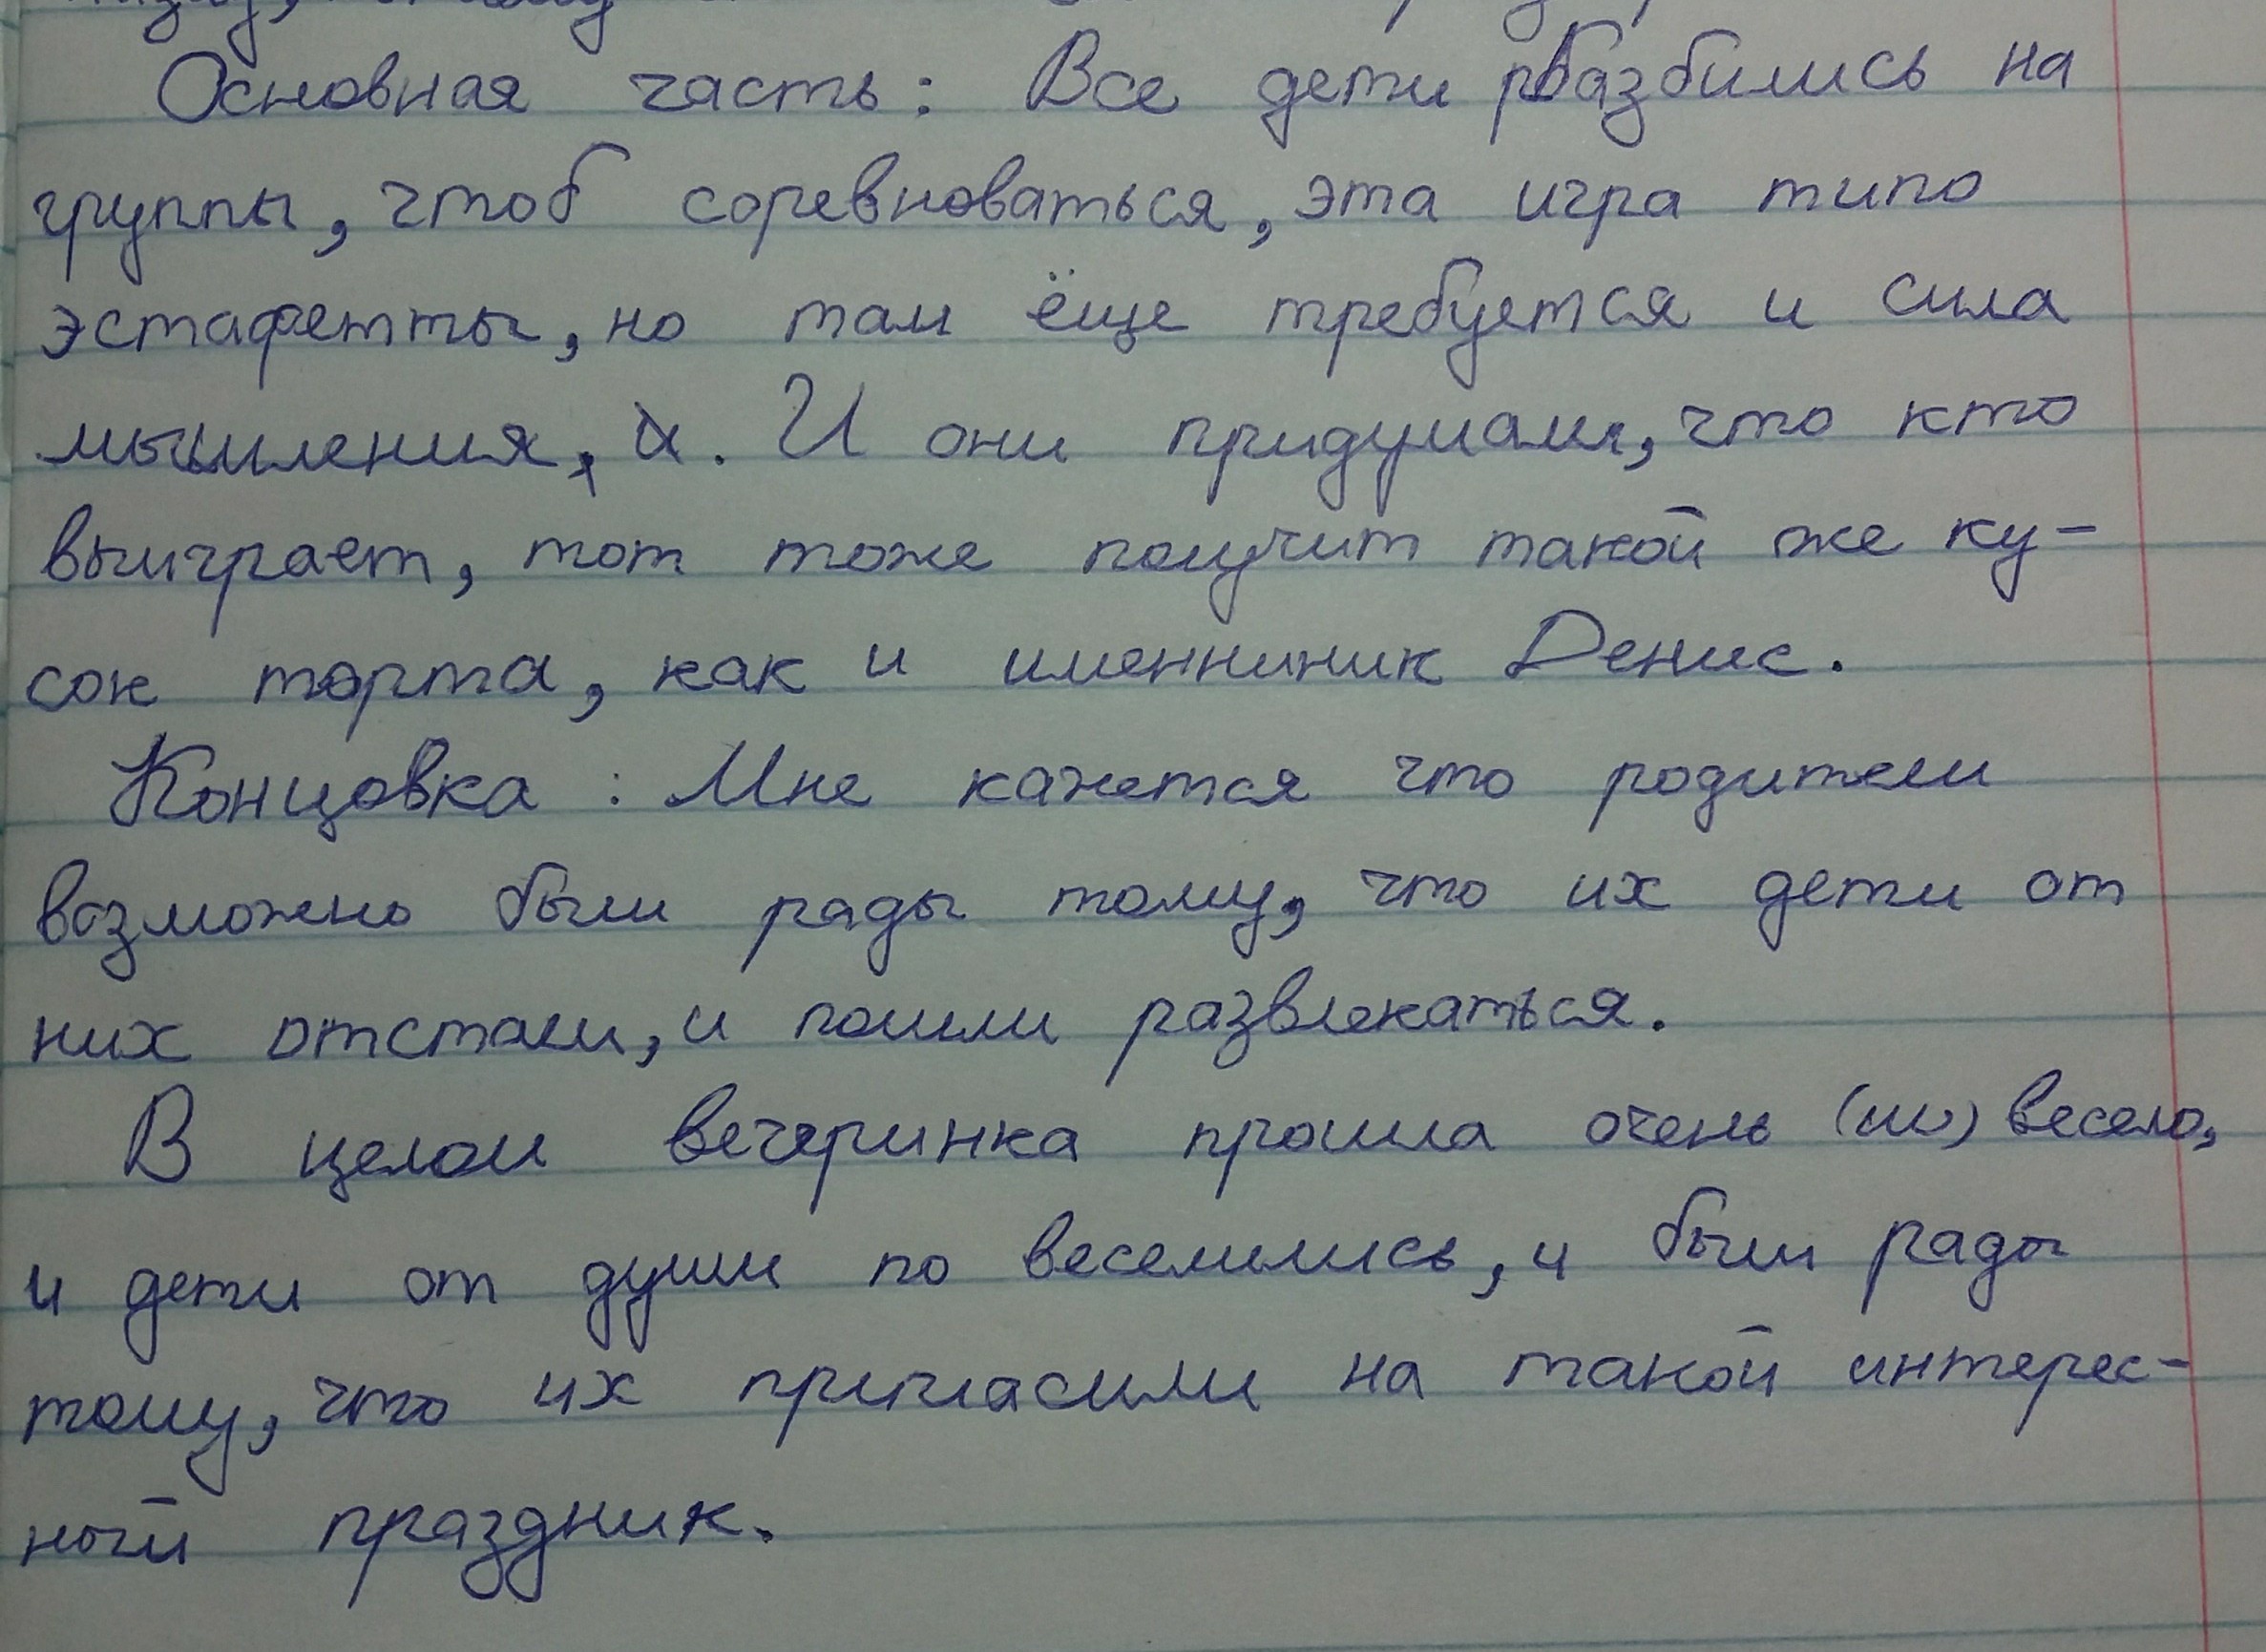 Основная часть: Все дети разбились на
группы, чтоб соревноваться, эта игра типо
эстафетты, но там ёще требуется и сила
мышления. И они придумали, что кто
выиграет, тот тоже получит такой же ку-
сок торта, как и именниник Денис.
Концовка : Мне кажется что родители
возможно были рады тому, что их дети от
них отстали, и пошли развлекаться.
В целом вечеринка прошла очень весело,
и дети от души по веселились, и были рады
тому, что их пригласили на такой интерес-
ной праздник.